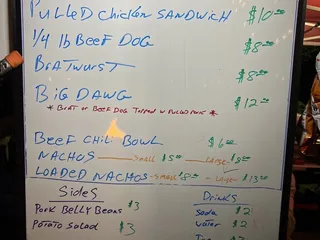 PULLED CHICKEN SANDWICH $10.00
1/4 lb BEEF DOG $8.00
BRATWURST $8.00
BIG DAWG $12.00
* BRAT OR BEEF DOG TOPPED w/ PULLED PORK *
BEEF CHILI BOWL $6.00
NACHOS SMALL $5.00 LARGE $8.00
LOADED NACHOS SMALL $8.00 LARGE $13.00
Sides
PORK BELLY BEANS $3
POTATO SALAD $3
Drinks
Soda $2
Water $2